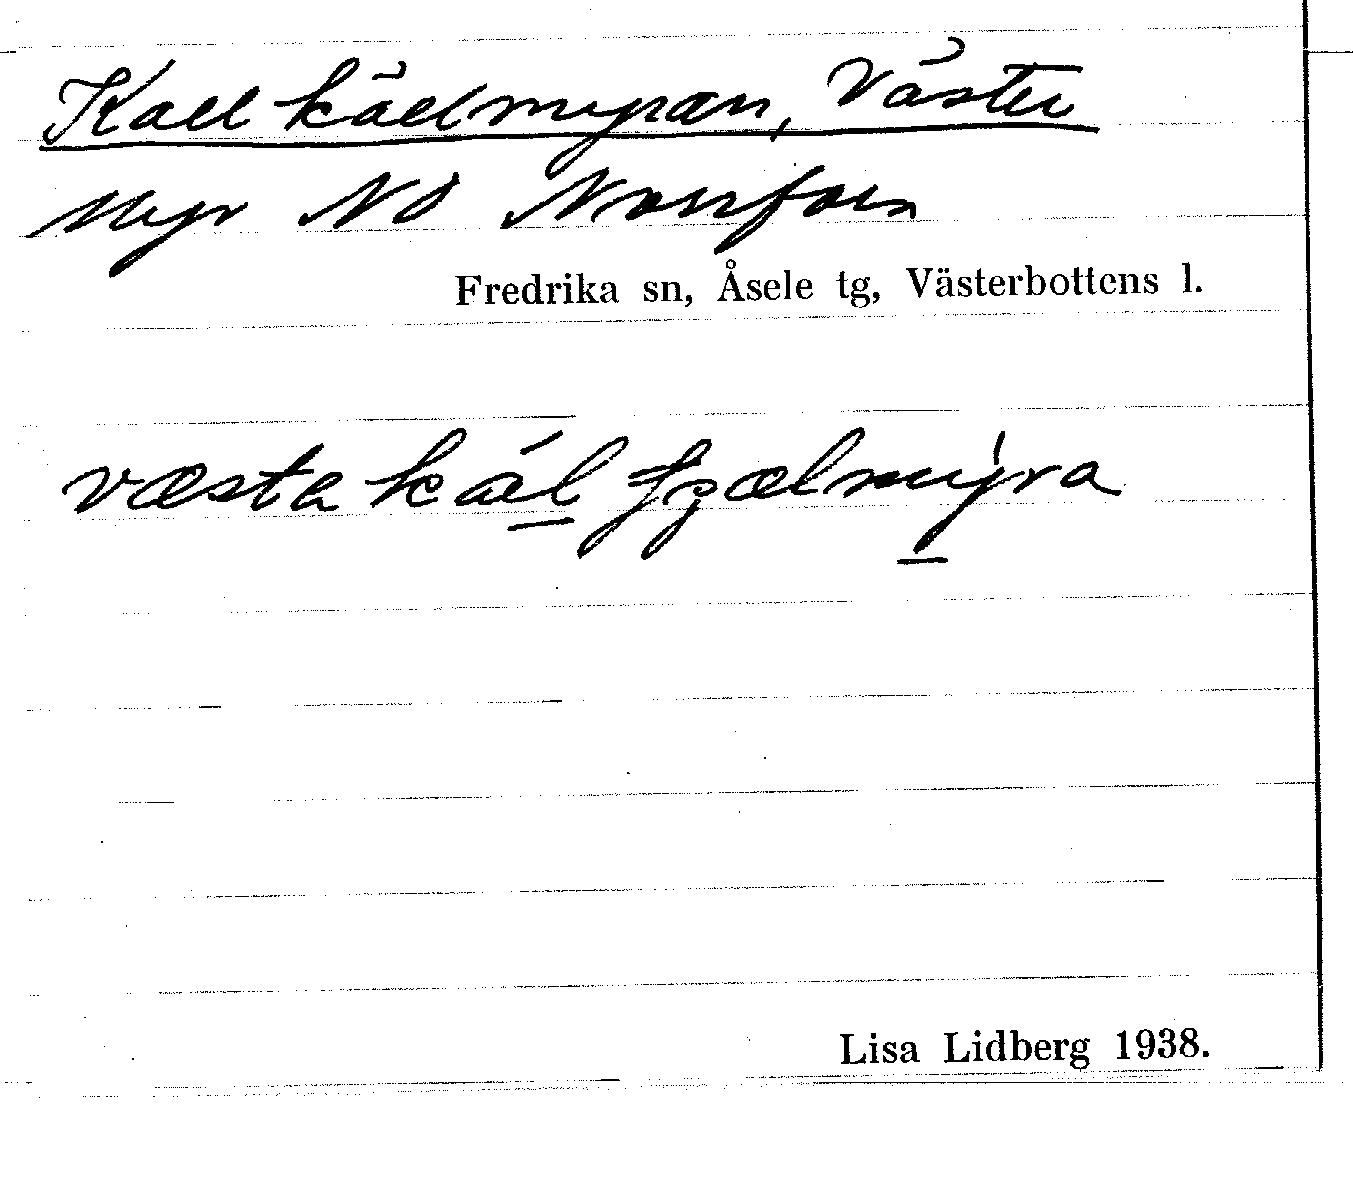 Kallkällmyran, Väster
Myr NO Norrfors
Fredrika sn, Åsele tg, Västerbottens l.
væsta kál
Lisa Lidberg 1938.